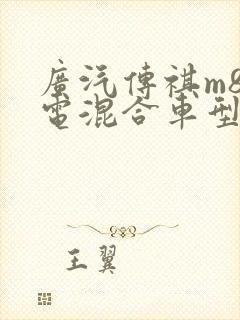 廣汽傳祺m8
電混合車型
王翼